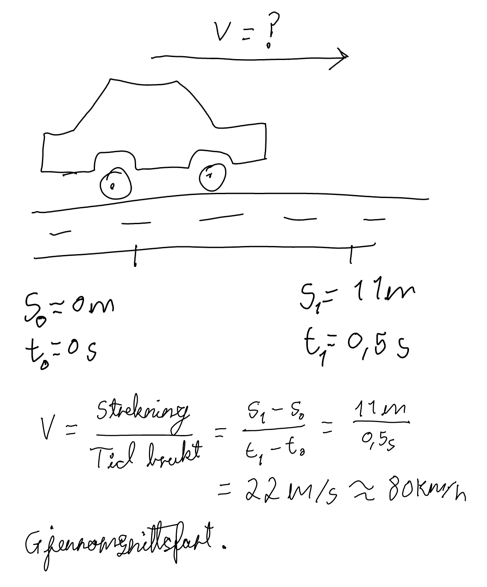 V = ?
S₀ ≈ 0 m
t₀ = 0 s
S₁ = 11 m
t₁ = 0,5 s
V = Strekning / Tid brukt = S₁ - S₀ / t₁ - t₀ = 11 m / 0,5 s
= 22 m/s ≈ 80 km/h
Gjennomsnittsfart.